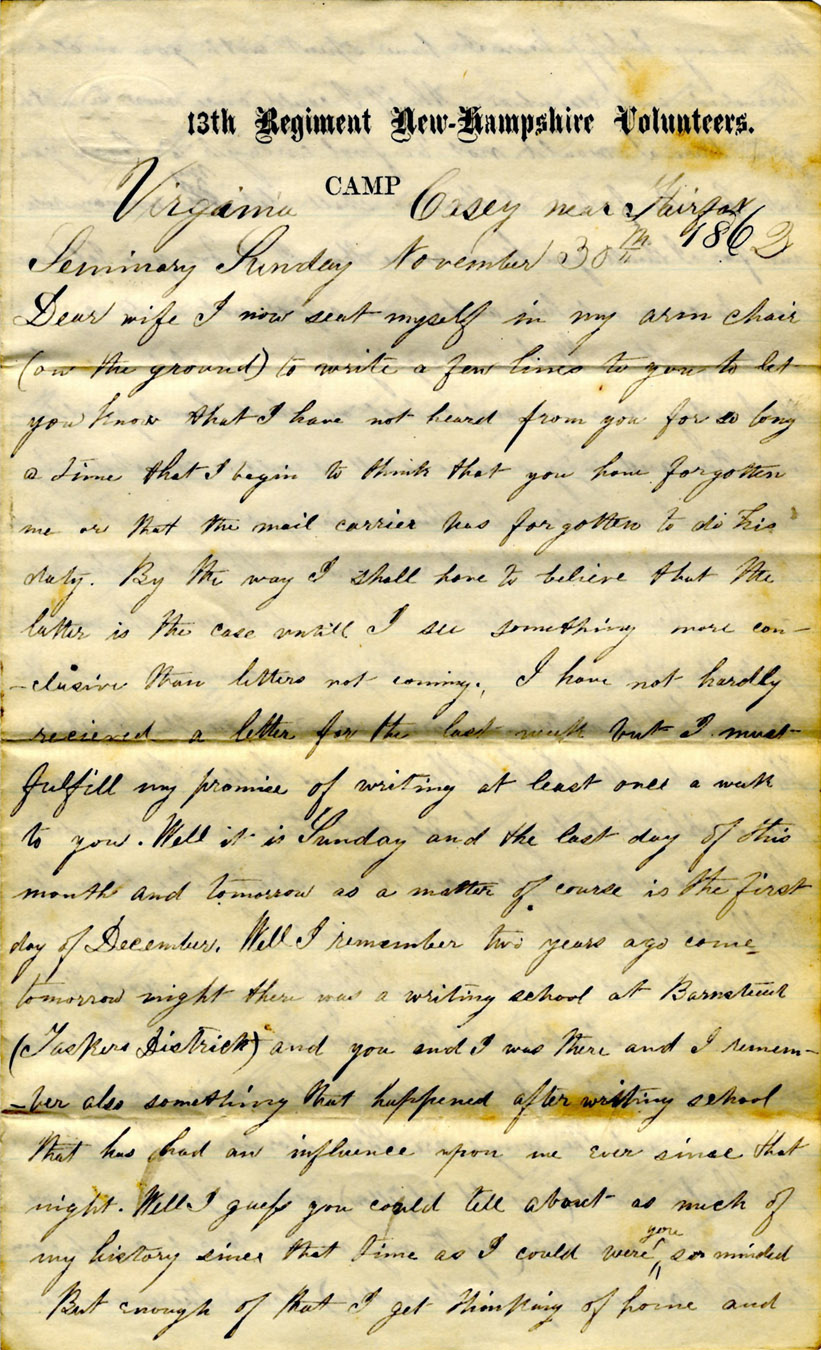 13th Regiment New-Hampshire Volunteers.
CAMP
Virginia Casey near Fairfax
Seminary Sunday November 30th 1862
Dear wife I now seat myself in my arm chair
(on the ground) to write a few lines to you to let
you know that I have not heard from you for so long
a time that I begin to think that you have forgotten
me or that the mail carrier has forgotten to do his
duty. By the way I shall have to believe that the
latter is the case untill I see something more con-
-clusive than letters not coming. I have not hardly
recieved a letter for the last week but I must
fulfill my promise of writing at least once a week
to you. Well it is Sunday and the last day of this
month and tomorrow as a matter of course is the first
day of December. Well I remember two years ago come
tomorrow night there was a writing school at Barnstead
(Taskers District) and you and I was there and I remem-
-ber also something that happened after writing school
that has had an influence upon me ever since that
night. Well I guess you could tell about as much of
my history since that time as I could were you so minded
But enough of that I get thinking of home and